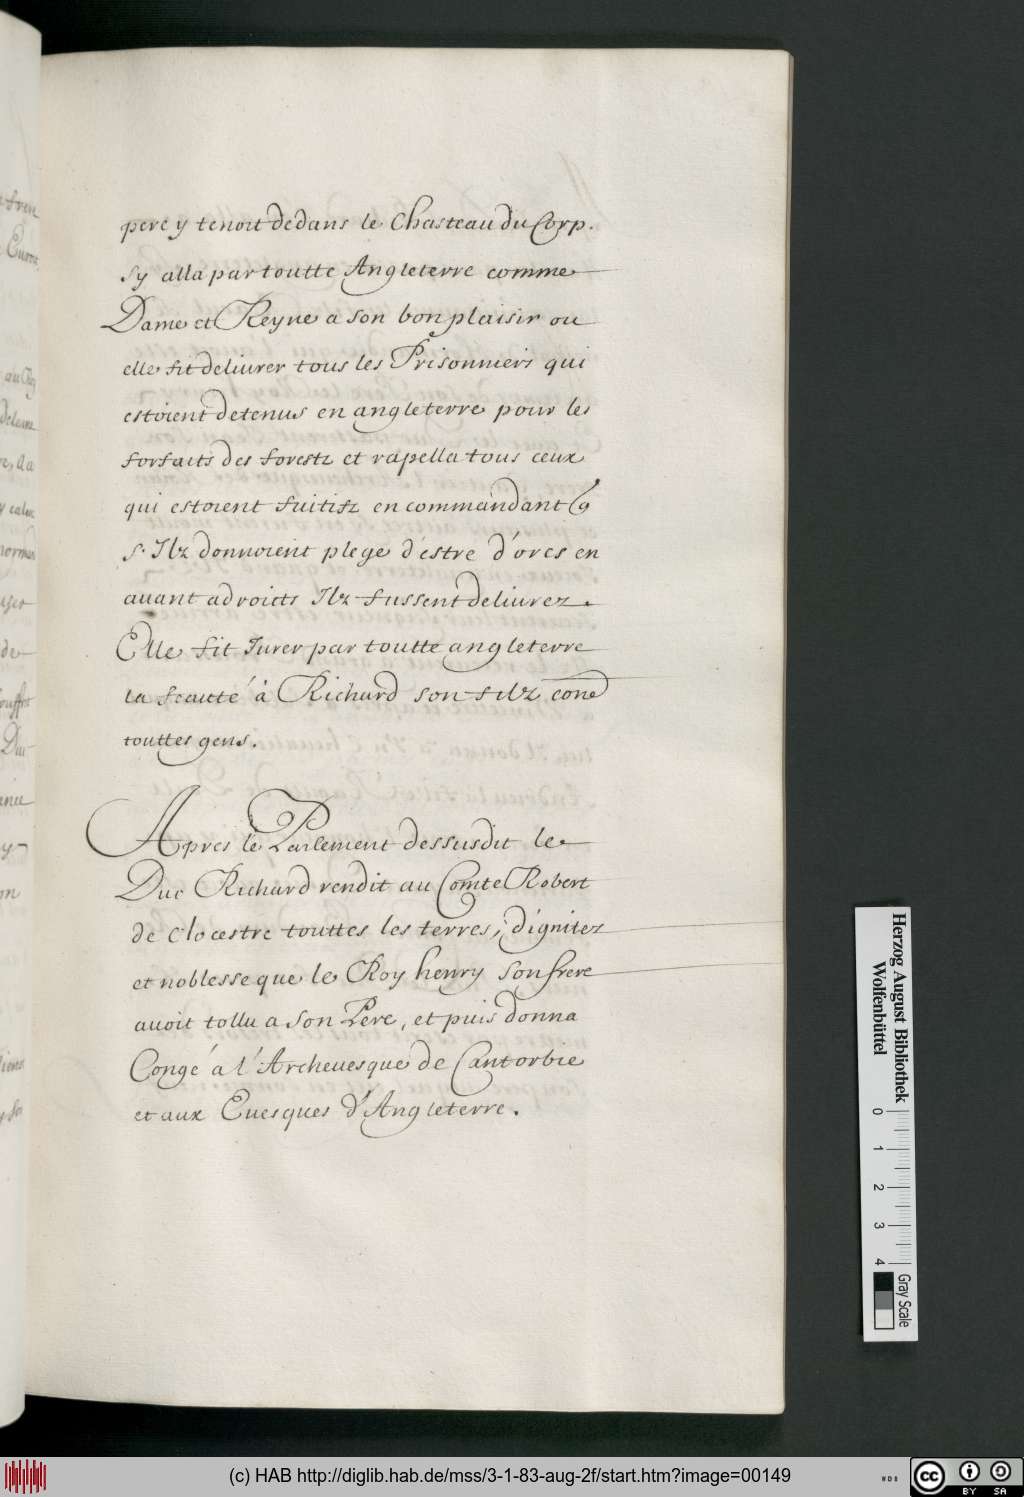 pere y tenoit dedans le Chasteau du Corp.
sy alla par toutte Angleterre comme
Dame et Reyne a son bon plaisir ou
elle fit deliurer tous les Prisonniers qui
estoient detenus en angleterre pour les
forfaits des forestz et rapella tous ceux
qui estoient fuitifz en commandant q
s. Ilz donnoient plege d'estre d'ores en
auant a droicts Ilz fussent deliurez.
Elle fit Jurer par toutte angleterre
la feauté à Richard son filz cone
touttes gens.
Apres le Parlement dessusdit le
Duc Richard rendit au Comte Robert
de clocestre touttes les terres, dignitez
et noblesse que le Roy henry son frere
auoit tollu a son Pere, et puis donna
Congé a l'Archeuesque de Cantorbie
et aux Euesques d'Angleterre.
Herzog August Bibliothek
Wolfenbüttel
0 1 2 3 4
Gray Scale
(c) HAB http://diglib.hab.de/mss/3-1-83-aug-2f/start.htm?image=00149
cc BY SA